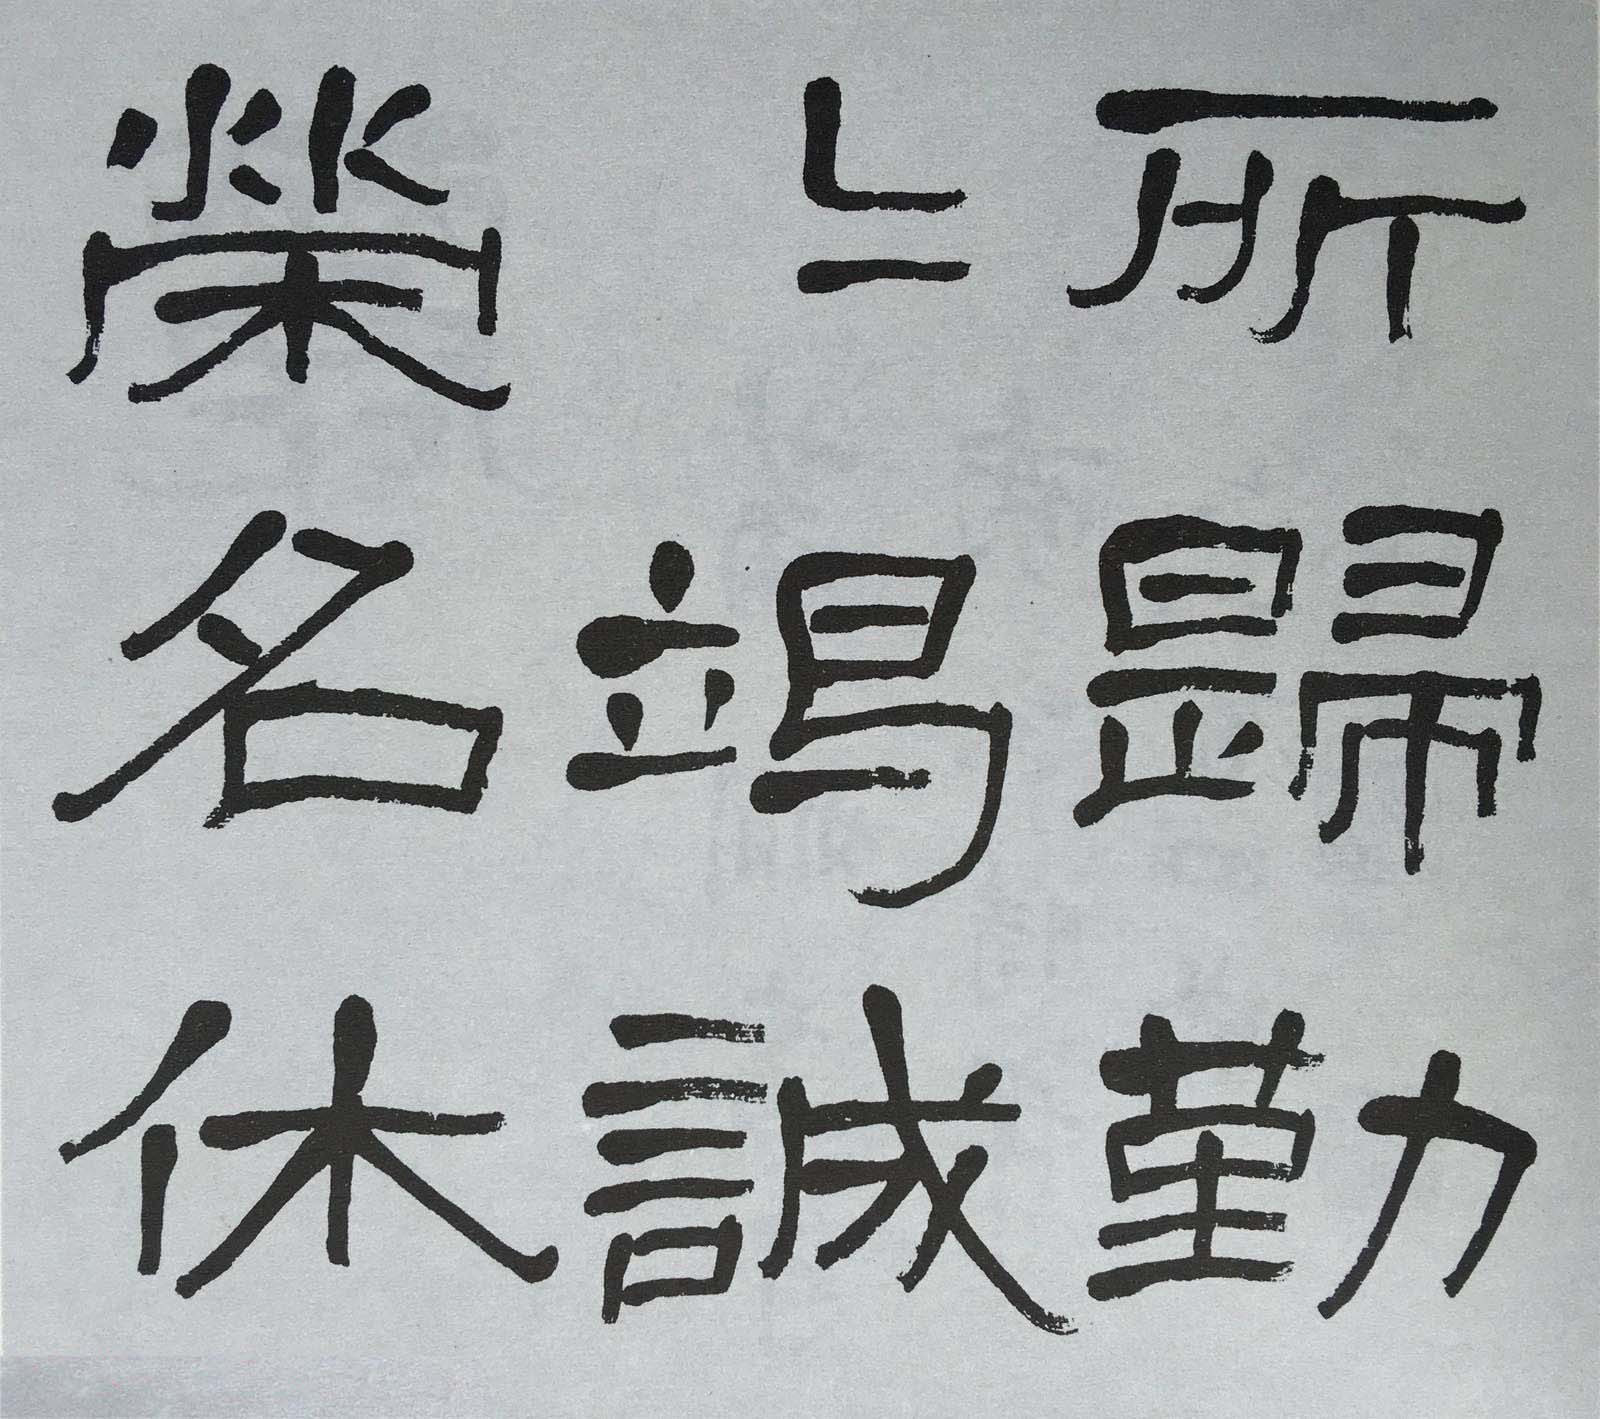 所歸勤
々竭誠
榮名休